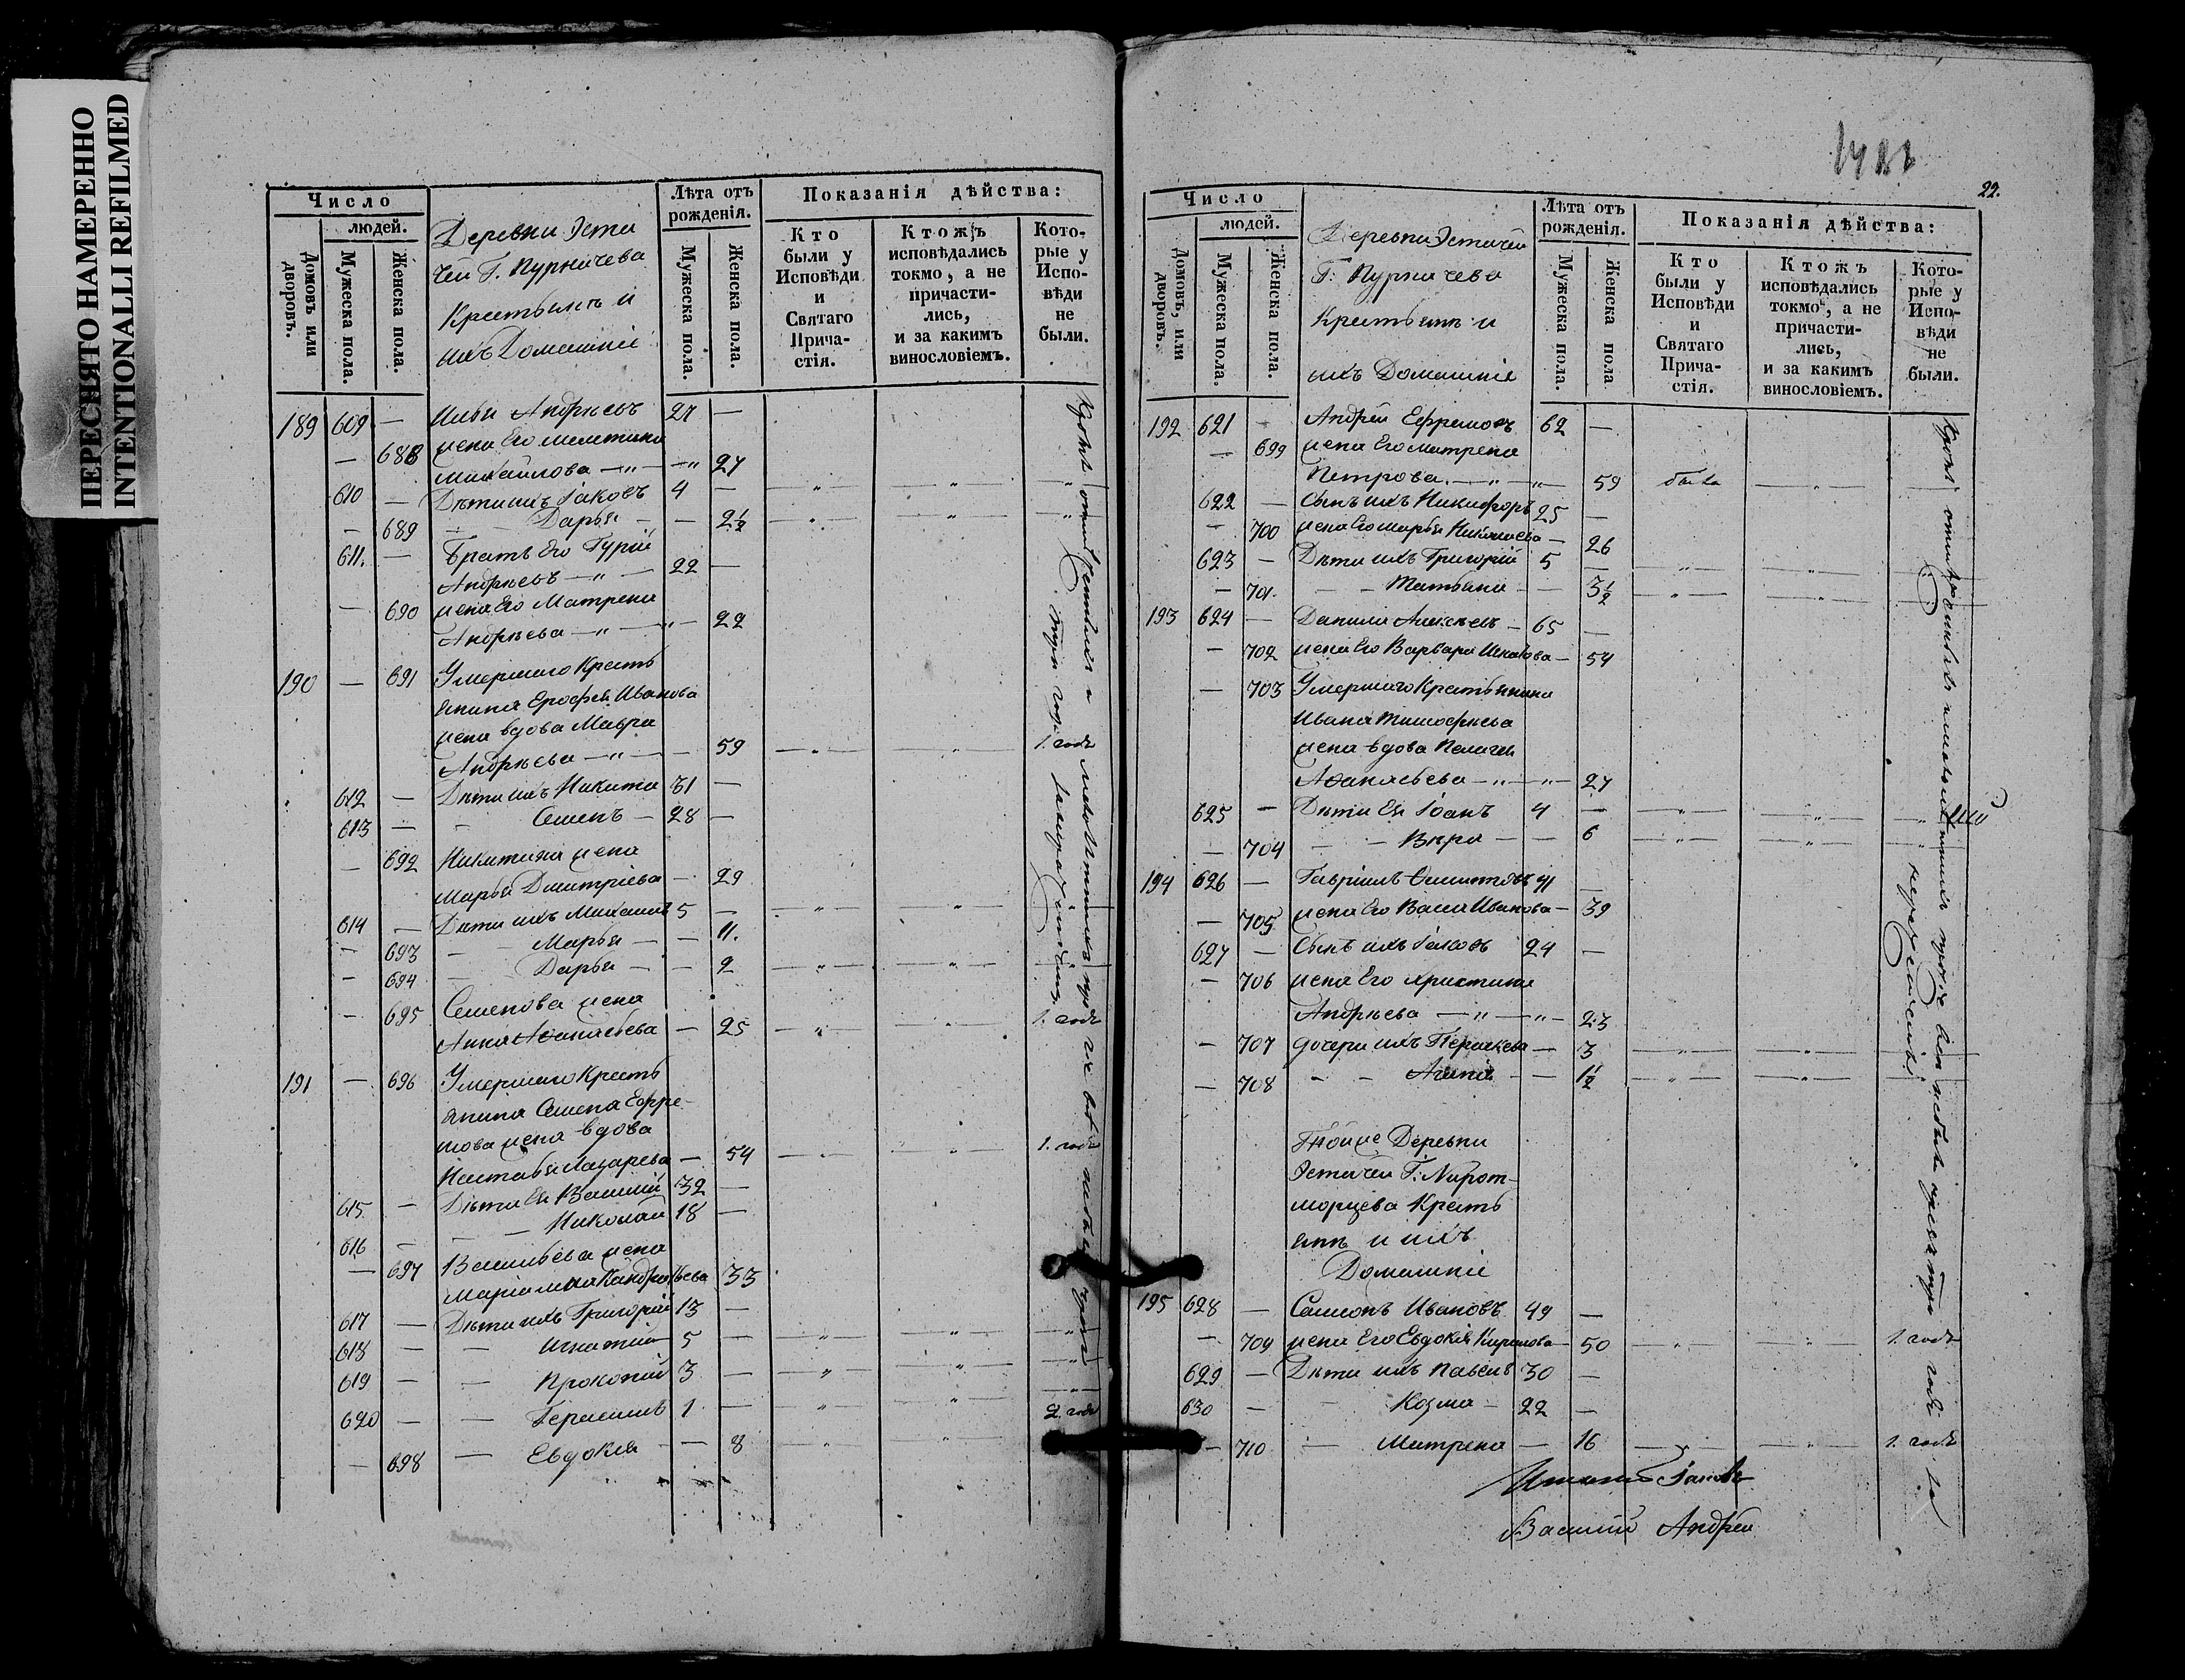 ПЕРЕСНЯТО НАМЕРЕННО
INTENTIONALLI REFILMED
Число
людей.
Домовъ или дворовъ.
Мужеска пола.
Женска пола.
Деревни Эсти
чеи Г. Пурничева
Крестьянъ и
ихъ Домашніе
Лѣта отъ рожденія.
Мужеска пола.
Женска пола.
Показанія дѣйства:
Кто были у Исповѣди и Святаго Прича-стія.
Ктожъ исповѣдались токмо, а не причасти-лись, и за какимъ винословіемъ.
Кото-рые у Испо-вѣди не были.
189 609 — Илья Андрѣевъ 27 —
— 688 жена Его
Михайлова —"— —" 27
610 — Дѣти ихъ Іаковъ 4 —
— 689 — — Дарья — — 2½
611. — Братъ Его Гурій
Андрѣевъ —"— 22 —
— 690 жена Его Матрена
Андрѣева —"— —"— 22
190 — 691 Умершаго Кресть
янина Ерофея Иванова
жена вдова Мавра
Андрѣева —"— — 59 1. годъ
612 — Дѣти ихъ Никита 31 —
613 — — Семенъ — 28 —
— 692 Никитина жена
Марья Дмитріева — 29
614 — Дѣти ихъ Михаилъ 5 —
— 693 — Марья — — 11.
— 694 — Дарья — — 2
— 695 Семенова жена
Анна Аѳанасьева — 25 1. годъ
191 — 696 Умершаго Кресть
янина Семена Ефре-
мова жена вдова
Наталья Лазарева — 54 1. годъ
615 — Дѣти Ея Василій 32 —
616 — — — Николай 18 —
— 697 Васильева жена
33
617 — Дѣти ихъ Григорій 13 —
618 — — Игнатій 5 —
619 — — Прокопій 3 —
620 — — Герасимъ 1 — 2. года
— 698 — Евдокія — — 8
22.
Число
людей.
Домовъ, или дворовъ.
Мужеска пола.
Женска пола.
Деревни Эстичеи
Г. Пурничева
Крестьянъ и
ихъ Домашніе
Лѣта отъ рожденія.
Мужеска пола.
Женска пола
Показанія дѣйства:
Кто были у Исповѣди и Святаго Прича-стія.
Ктожъ исповѣдались токмо, а не причасти-лись, и за какимъ винословіемъ.
Кото-рые у Испо-вѣди не были.
192 621 — Андрей Ефремовъ 62 —
— 699 жена Его Матрена
Петрова —"— —"— 59 была
622 — Сынъ ихъ Никифоръ 25 —
— 700 жена Его Марья Николаева — 26
623 — Дѣти ихъ Григорій 5 —
— 701. — — Татьяна — — 3½
193 624 — Данила Алексѣевъ — 65 —
— 702 жена Его Варвара Игнатова — 54
— 703 Умершаго Крестьянина
Ивана Тимофѣева
жена вдова Пелагея
Аѳанасьева —"— —"— 27
625 — Дѣти Ея Іоанъ 4 —
— 704 — — Вѣра — — 6
194 626 — Гавріилъ 41 —
— 705 жена Его Васса Иванова — 39
627 — Сынъ ихъ Іаковъ 24 —
— 706 жена Его Христина
Андрѣева —"— —"— 23
— 707 дочери ихъ Параскева — 3
— 708 — — Агапія — — 1½
Тойже Деревни
Эстичеи Г.
Кресть
янъ и ихъ
Домашніе
195 628 — Самсонъ Ивановъ 49 —
— 709 жена Его Евдокія — 50 1. годъ
629 — Дѣти ихъ Павелъ 30 —
630 — — Козма — 22 —
— 710 — Матрена — 16 1. годъ
Іаковъ
Василій Андрей